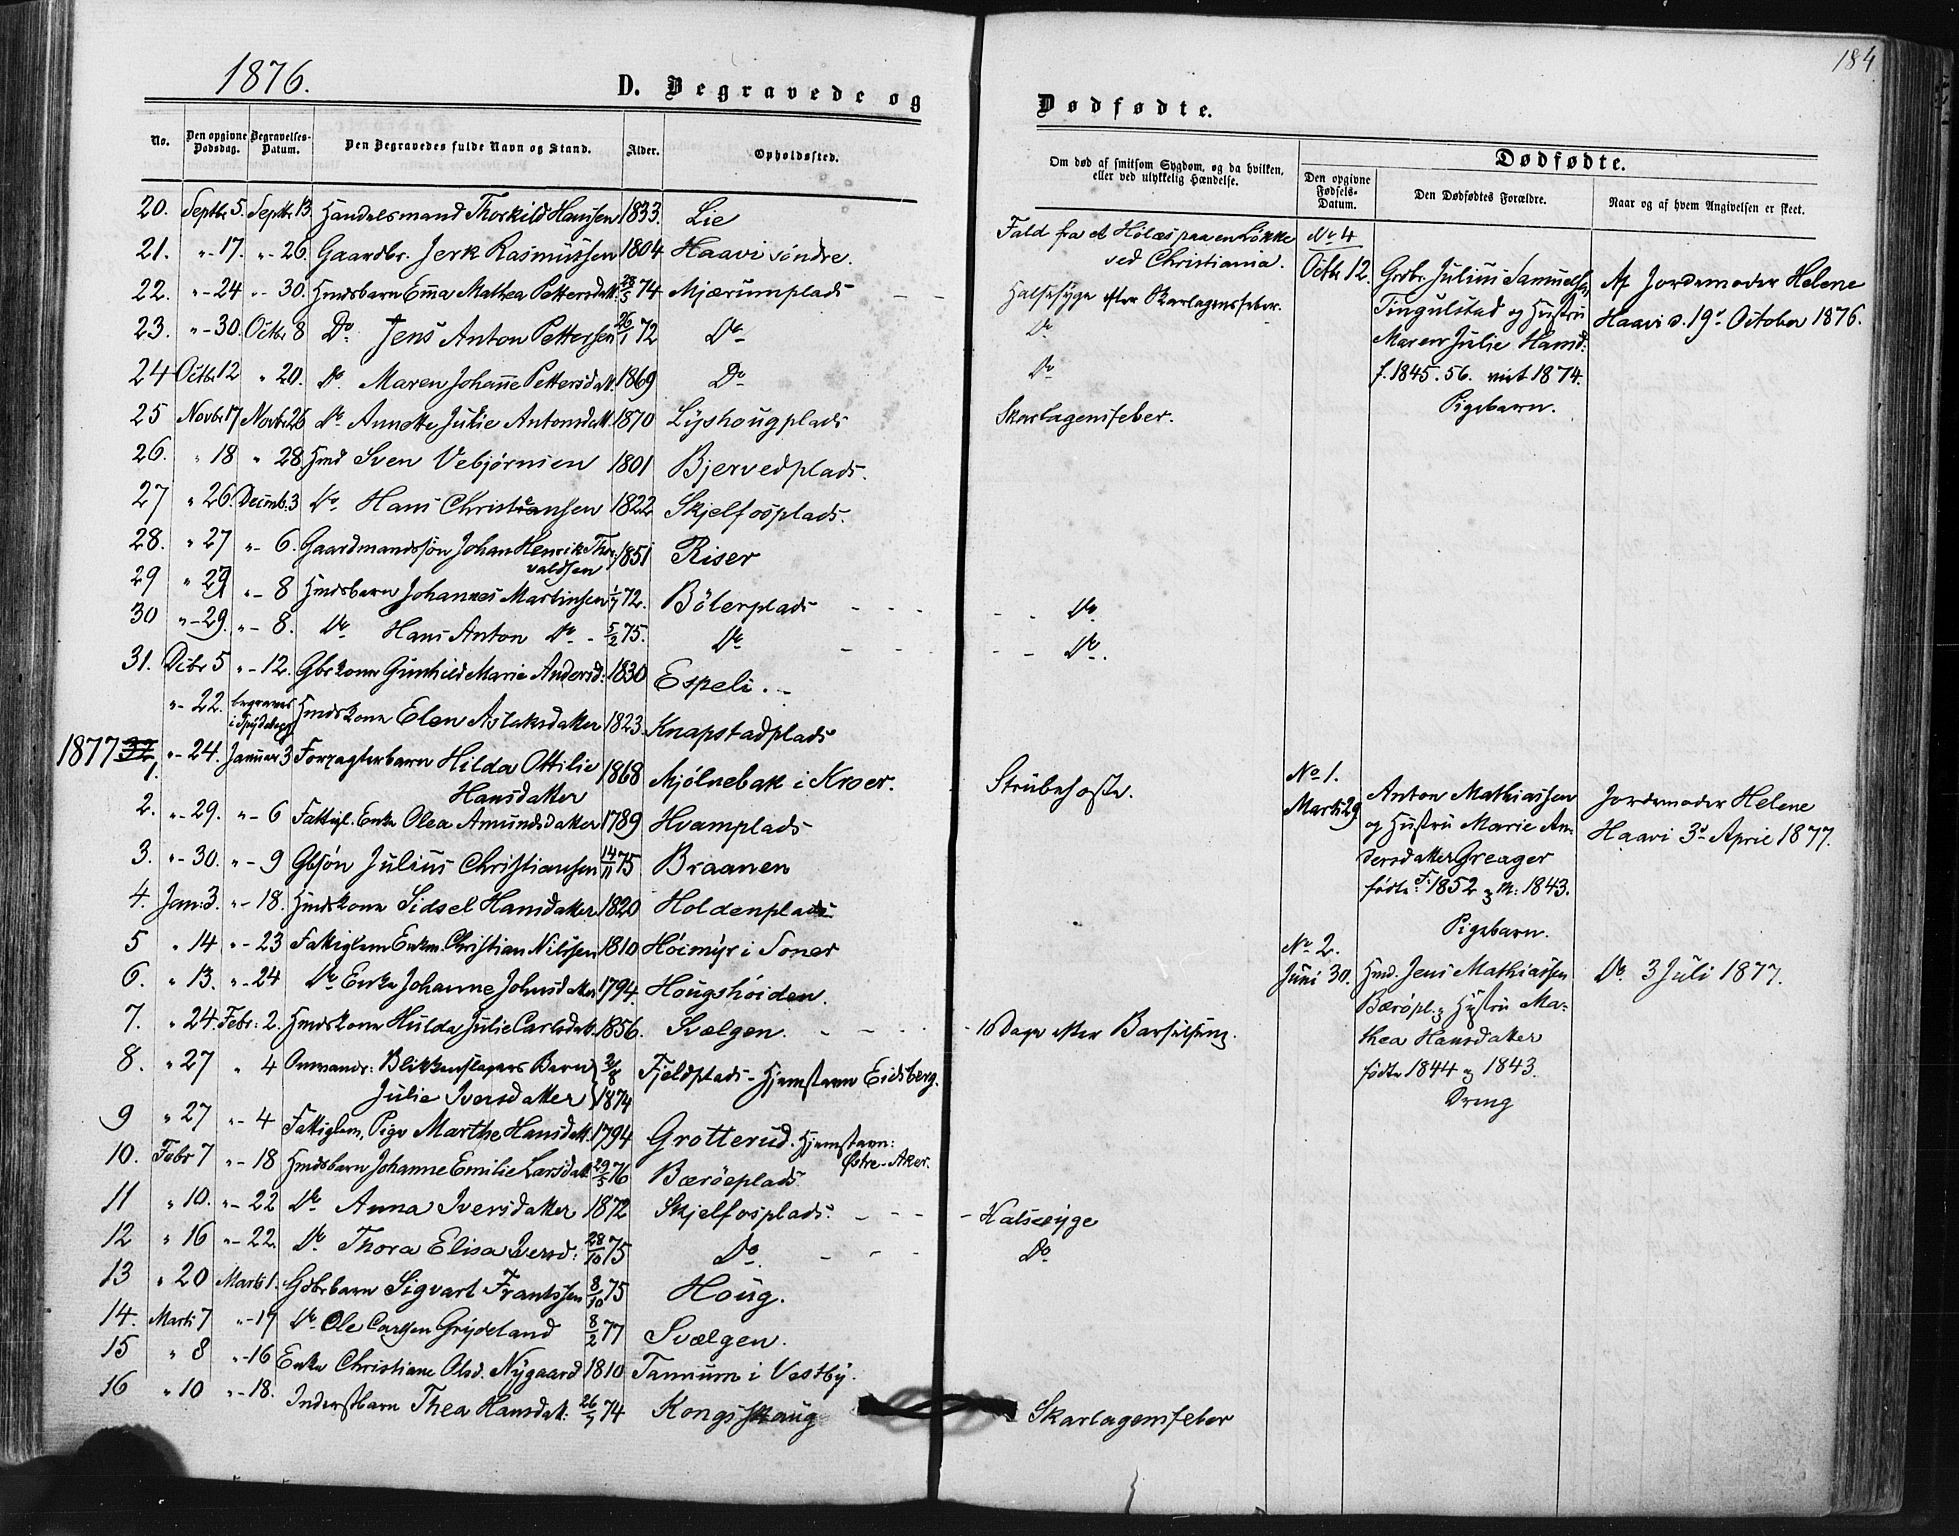 1876.
D. Begravede og
No.
Den opgivne Dødsdag.
Begravelses-Datum.
Den Begravedes fulde Navn og Stand.
Alder.
Opholdssted.
20. Septbr 5. Septbr 13. Handelsmand Thorkild Hansen 1833. Lie
21. "-17. "-26. Gaardbr. Jerk Rasmussen 1804 Haavi søndre.
22. "-24 "-30. Hmdsbarn Emma Mathea Pettersdatt. 28/5 74 Mjærumplads
23. "-30. Octbr 8 Do. Jens Anton Pettersen 26/1 72 Do
24 Octbr 12 " 20. Do. Maren Johanne Pettersdatt. 1869 Do
25 Novbr 17 Novbr 26 Do Annette Julie Antonsdatt. 1870 Lyshougplads
26. " 18 " 28 Hmd Sven Vebjørnsen 1801 Bjervedplads.
27 " 26. Decmb. 3 Do. Hans Christiansen 1822 Skjelfosplads.
28. " 27 "- 6. Gaardmandssøn Johan Henrik Thor-
valdsen 1851 Riser
29 " 29 "- 8 Hmdsbarn Johannes Martinsen 1/7 72. Bølerplads
30 "-29. "- 8. Do Hans Anton Do - 5/2 75. Do
31. Dcbr 5 "-12. Gbrkone Gunhild Marie Andersd: 1830 Espeli.
"-22. begraves
i Spydeberg Hmdskone Elen Aslaksdatter 1823. Knapstadplads
1877 32 1. "-24. Januar 3 Forpagterbarn Hilda Ottilie
Hansdatter 1868 Mjølnebak i Kroer.
2. "-29. "- 6 Fattigl. Enke Olea Amundsdatter 1789 Hvamplads
3. "-30. "- 9 Gbsøn Julius Christiansen 14/11 75 Braanen
4. Jan: 3. "-18. Hmdskone Sidsel Hansdatter 1820 Holdenplads
5 " 14 "-23 Fattiglem Enkm. Christian Nilssen 1810 Høimyr i Soner
6. " 13. "-24 Do Enke Johanne Johnsdatter 1794. Hougshøiden.
7. " 24. Febr: 2. Hmdskone Hulda Julie Carlsdatt. 1856. Svælgen.
8. " 27 " 4 Omvandr: Blikkenslagers Barn
Julie Iversdatter 2/8 1874 Fjeldplads - Hjemstavn Eidsberg.
9 " 27 "- 4 Fattiglem, Pige Marthe Hansdatt. 1794 Grotterud. Hjemstavn:
Østre-Aker.
10. Febr 7 "-18 Hmdsbarn Johanne Emilie Larsdatt 29/5 76 Bærøeplads
11 " 10. "-22 Do Anna Iversdatter 1872 Skjelfosplads.
12 " 16 "-22. Do. Thora Elisa Iversd: 28/10 75 Do.
13 " 20 Marts 1. Gdbrbarn Sigvart Frantssen 8/10 75 Houg.
14. Marts 7 "-17 Do. Ole Carlsen Grydeland 8/2 77 Svælgen.
15 " 8 "-16 Enke Christiane Olsd. Nygaard 1810 Tannum i Vestby.
16 " 10 "-18. Inderstbarn Thea Hansdatt: 26/7 74 Kongsskaug
184
Dødfødte.
Om død af smitsom Sygdom, og da hvilken,
eller ved ulykkelig Hændelse.
Dødfødte.
Den opgivne Fødsels-Datum.
Den Dødfødtes Forældre.
Naar og af hvem Angivelsen er skeet.
Fald fra et Hølæs paa en Løkke
ved Christiania.
Halssyge efter Skarlagensfeber.
Do
Do
Skarlagensfeber.
Do.
Do.
Strubehoste.
10 Dage efter Barselseng.
Halssyge
Do
Skarlagensfeber
No 4
Octbr 12. Grdbr. Julius Samuelsen
Tingulstad og Hustru
Maren Julie Hansd:
f. 1845. 56. viet 1874.
Pigebarn.
Af Jordemoder Helene
Haavi d. 19de October 1876.
No 1.
Marts 29 Anton Mathiassen
og Hustru Marie An-
dersdatter Greager
fødte F: 1852 og M: 1843.
Pigebarn.
Jordemoder Helene
Haavi 3de April 1877.
No 2.
Juni 30. Hmd. Jens Mathiassen
Bærøpl. og Hustru Ma-
thea Hansdatter
fødte 1844 og 1843.
Dreng
Do. 3 Juli 1877.